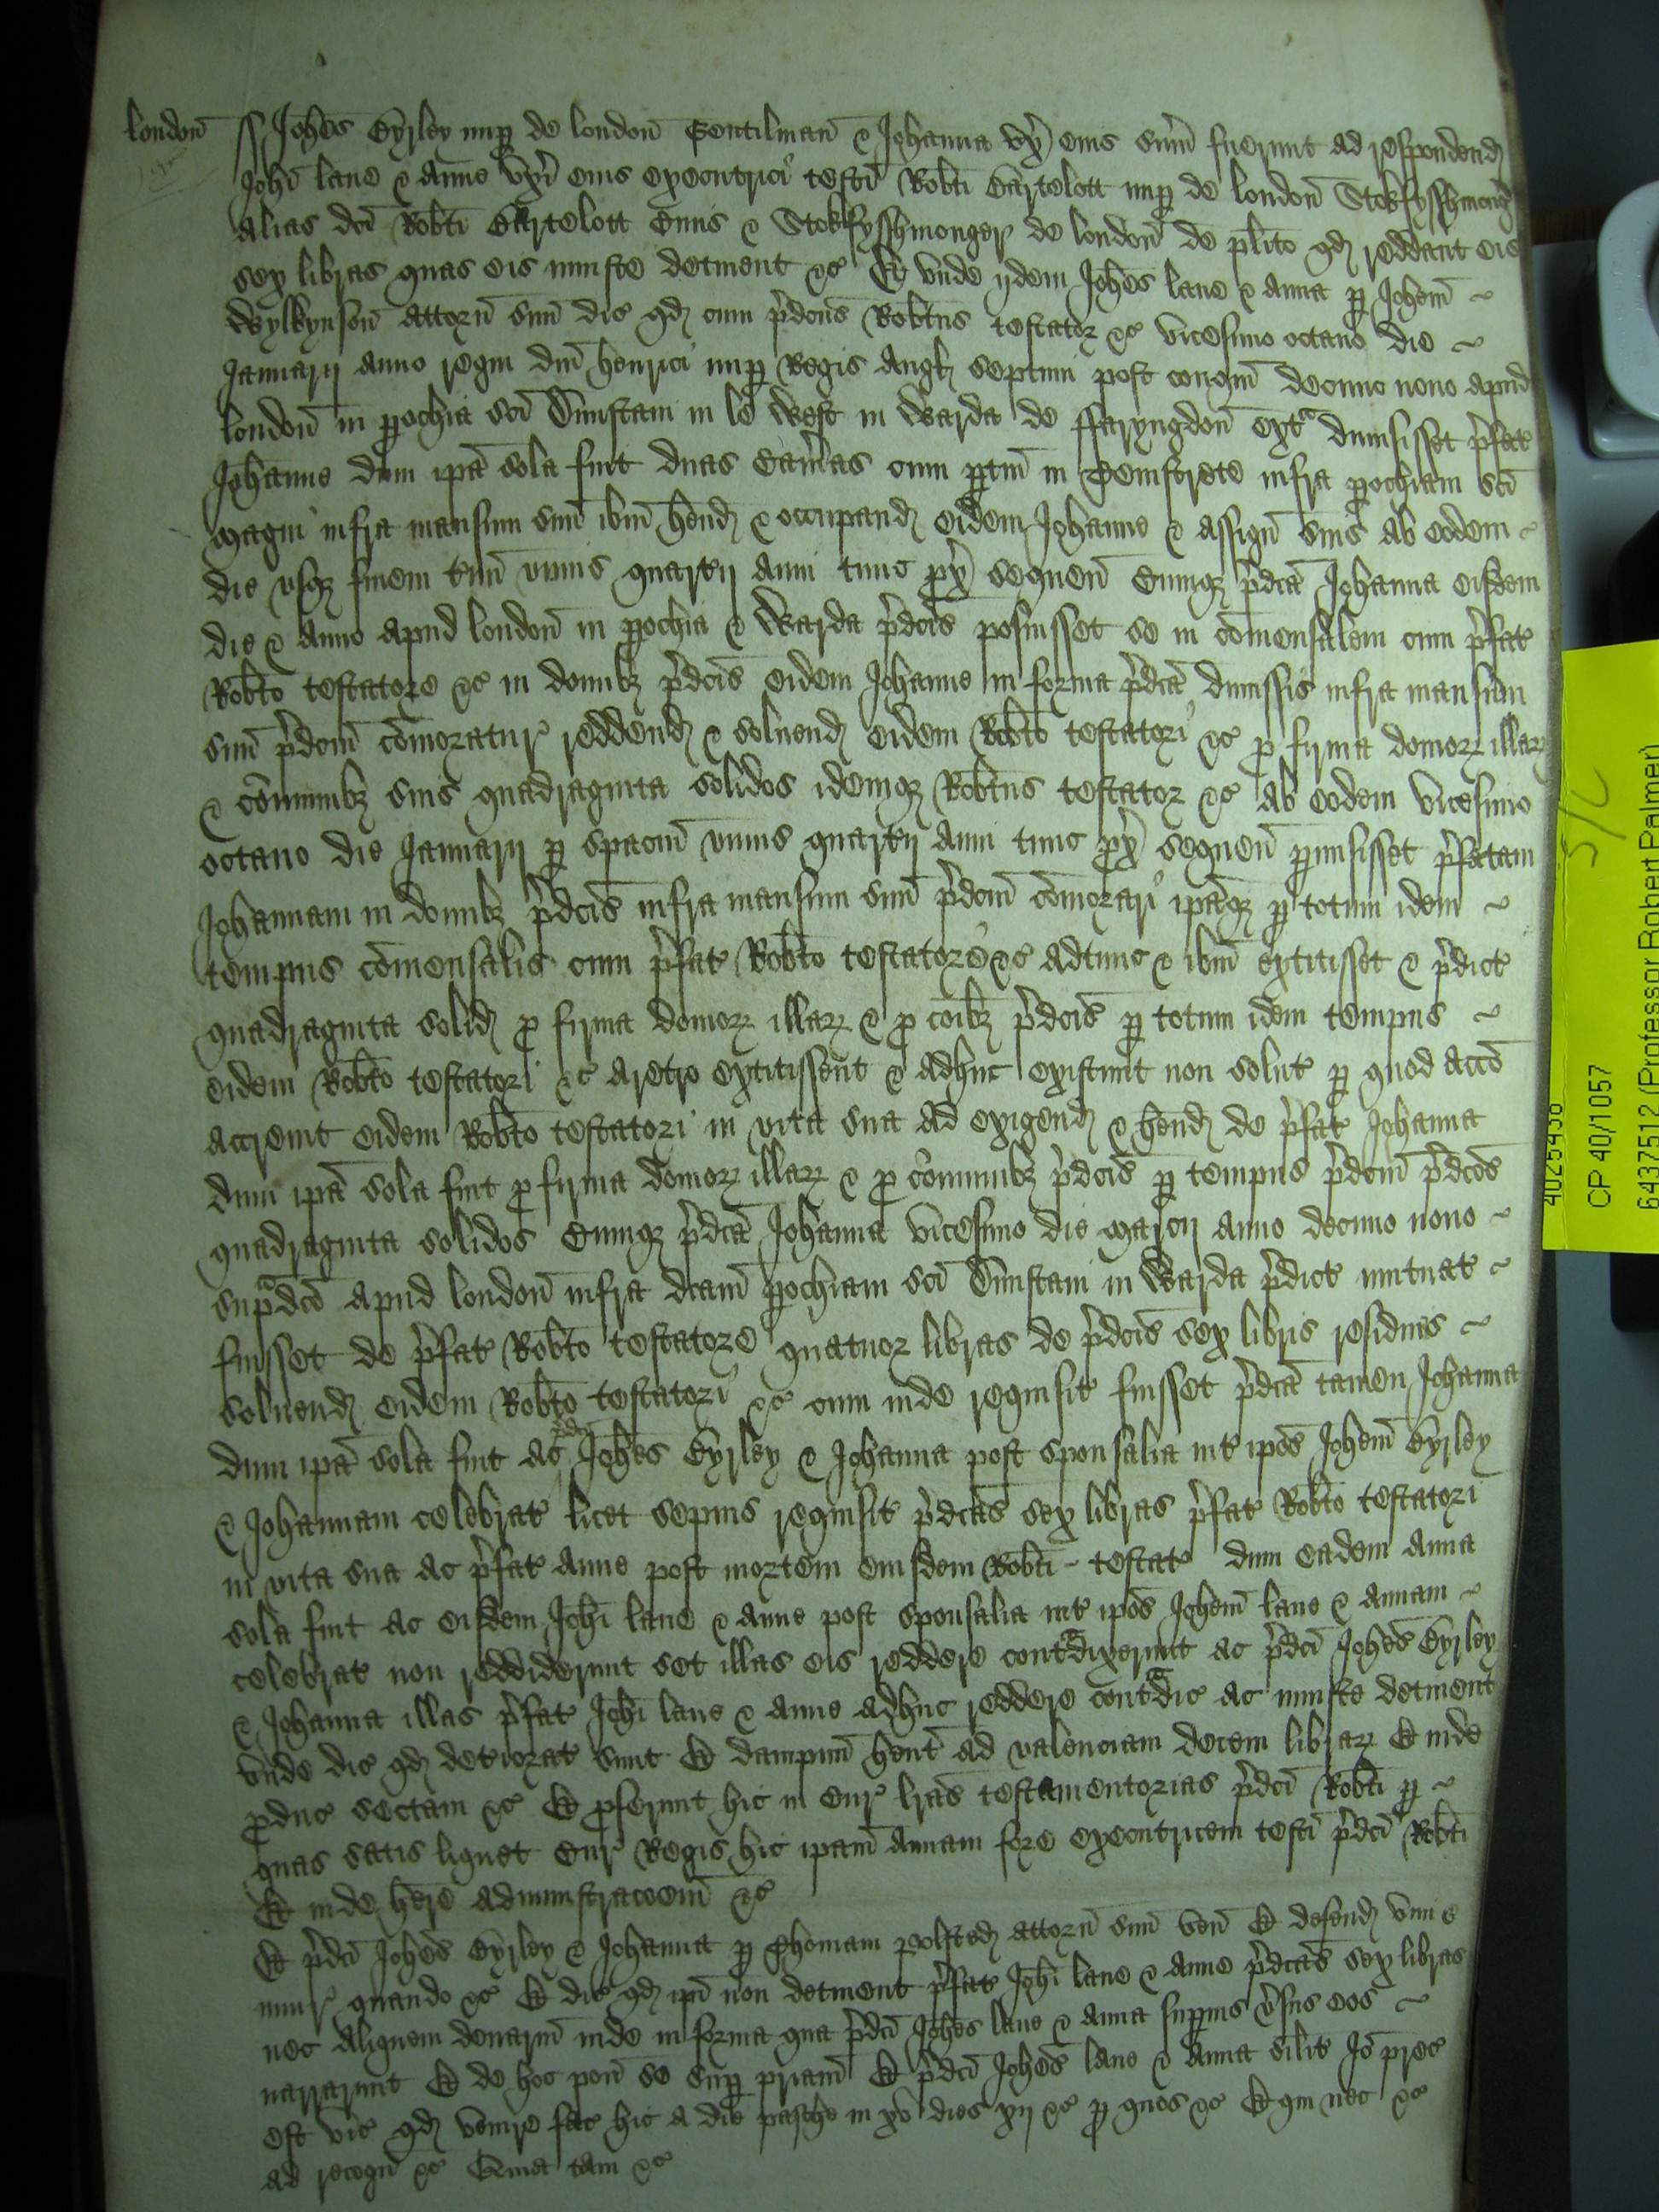 london ss Johes Byrley nup de london Gentilman & Johanna ux eius sum fuerunt ad respondend
Johi lane & Anne uxi eius executrici testi Robti Bartelott nup de london Stokfysshmong
alias dci Robti Bartelott Civis & Stokfysshmonger de london de plito qd reddant eis
sex libras quas eis iniuste detinent &c Et unde ijdem Johes lane & Anna p Johem
Wylkynson attorn suu dic qd cum pdcus Robtus testator &c vicesimo octavo die
Januarij anno regni dni henrici nup Regis Angl septimi post conqm decimo nono apud
london in pochia sci Dunstani in le West in Warda de ffaryngdon ext dimisisset pfat
Johanne dum ipa sola fuit duas Camas cum ptin in Temstrete infra pochiam sci
Magni infra mansum suu ibm hend & occupand eidem Johanne & assign suis ab eodem
die usq finem unius quartij anni tunc px sequen Cumq pdca Johanna eisdem
die & Anno apud london in pochia & Warda pdcis posuisset se in comensalem cum pfat
Robto testatore &c in domibz pdcis eidem Johanne in forma pdca dimissis infra mansum
suu pdcm comoratur reddend & solvend eidem Robto testatori &c p firma domorz illarz
& comunibz suis quadraginta solidos idemqz Robtus testator &c ab eodem vicesimo
octavo die Januarij p spaciu unius quartij anni tunc px sequen pmisisset pfatam
Johannam in domibz pdcis infra mansum suu pdcm comorari ipaqz p totum idem
tempus comensalis cum pfat Robto testatore &c adtunc & ibm extitisset & pdict
quadraginta solid p firma domorz illarz & p coibz pdcis p totum idem tempus
eidem Robto testatori &c aretro extitissent & adhuc existunt non solut p quod acco
accrevit eidem Robto testatori in vita sua ad exigend & hend de pfat Johanna
dum ipa sola fuit p firma domorz illarz & p comunibz pdcis p tempus pdcm pdcos
quadraginta solidos Cumqz pdca Johanna vicesimo die Marcij anno decimo nono
supadco apud london infra dcam pochiam sci Dunstani in Warda pdict mutuat
fuisset de pfat Robto testatore quatuor libras de pdcis sex libris residuis
solvend eidem Robto testatori &c cum inde requisit fuisset pdca tamen Johanna
dum ipa sola fuit ac pdci Johes Byrley & Johanna post sponsalia int ipos Johem Byrley
& Johannam celebrat licet sepius requisit pdcas sex libras pfat Robto testatori
in vita sua ac pfat Anne post mortem eiusdem Robti testat dum eadem Anna
sola fuit ac eisdem Johi lane & Anne post sponsalia int ipos Johem lane & Annam
celebrat non reddiderunt set illas eis reddere contadixerunt ac pdci Johes Byrley
& Johanna illas pfat Johi lane & Anne adhuc reddere contadic ac iniuste detinent
unde dic qd deteriorat sunt Et dampnu hent ad valenciam decem librarz Et inde
pduc sectam &c Et pferunt hic in Cur lras testamentorias pdci Robti p
quas satis liquet Cur Regis hic ipam Annam fore executricem testi pdci Robti
Et inde here administracoem &c
Et pdci Johes Byrley & Johanna p Thomam Polsted attorn suu ven Et defend vim &
iniur quando &c Et dic qd ipi non detinent pfat Johi lane & Anne pdcas sex libras
nec aliquem denariu inde in forma qua pdci Johes lane & Anna supius vsus eos
narrarunt Et de hoc pon se sup priam Et pdci Johes lane & Anna silit Io prec
est vic qd venire fac hic a die pasche in xv dies xij &c p quos &c Et qui nec &c
ad recogn &c Quia tam &c
5/C
4025438
CP 40/1057
6437512 (Professor Robert Palmer)